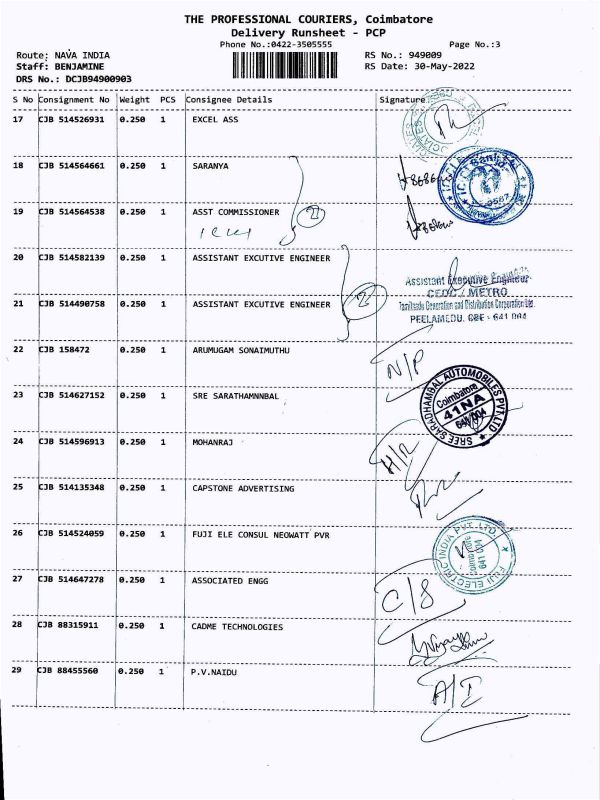 THE PROFESSIONAL COURIERS, Coimbatore
Delivery Runsheet - PCP
Phone No.:0422-3505555
Page No.:3
Route: NAVA INDIA
RS No.: 949009
Staff: BENJAMINE
RS Date: 30-May-2022
DRS No.: DCJB94900903
S No Consignment No Weight PCS Consignee Details Signature
17 CJB 514526931 0.250 1 EXCEL ASS
18 CJB 514564661 0.250 1 SARANYA
19 CJB 514564538 0.250 1 ASST COMMISSIONER
2
20 CJB 514582139 0.250 1 ASSISTANT EXCUTIVE ENGINEER
Assistant Executive Engineer
CEDC / METRO
Tamilnadu Generation and Distribution Corporation Ltd.
PEELAMEDU, CBE - 641 004
21 CJB 514490758 0.250 1 ASSISTANT EXCUTIVE ENGINEER
2
22 CJB 158472 0.250 1 ARUMUGAM SONAIMUTHU
N/P
23 CJB 514627152 0.250 1 SRE SARATHAMNNBAL
SREE SARADHAMBAL AUTOMOBILES PVT.LTD
Coimbatore
41NA
641 004
24 CJB 514596913 0.250 1 MOHANRAJ
H/R
25 CJB 514135348 0.250 1 CAPSTONE ADVERTISING
26 CJB 514524059 0.250 1 FUJI ELE CONSUL NEOWATT PVR
FUJI ELECTRIC INDIA PVT. LTD.
Coimbatore
641 004
27 CJB 514647278 0.250 1 ASSOCIATED ENGG
C/S
28 CJB 88315911 0.250 1 CADME TECHNOLOGIES
29 CJB 88455560 0.250 1 P.V.NAIDU
A/I